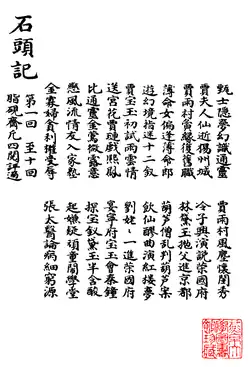 甄士隱夢幻識通靈　賈雨村風塵懷閨秀
賈夫人仙逝揚州城　冷子興演說榮國府
賈雨村夤緣復舊職　林黛玉抛父進京都
薄命女偏逢薄命郎　葫芦僧乱判葫芦案
遊幻境指迷十二釵　飲仙醪曲演紅樓夢
賈寶玉初試雨雲情　劉姥〻一進榮國府
送宮花賈璉戲熙鳳　宴寧府寶玉會秦鐘
比通靈金鶯微露意　探寶釵黛玉半含酸
戀風流情友入家塾　起嫌疑頑童鬧學堂
金寡婦貪利權受辱　張太醫論病細窮源
第一回　至十回
脂硯齋凡四閱評過
石頭記